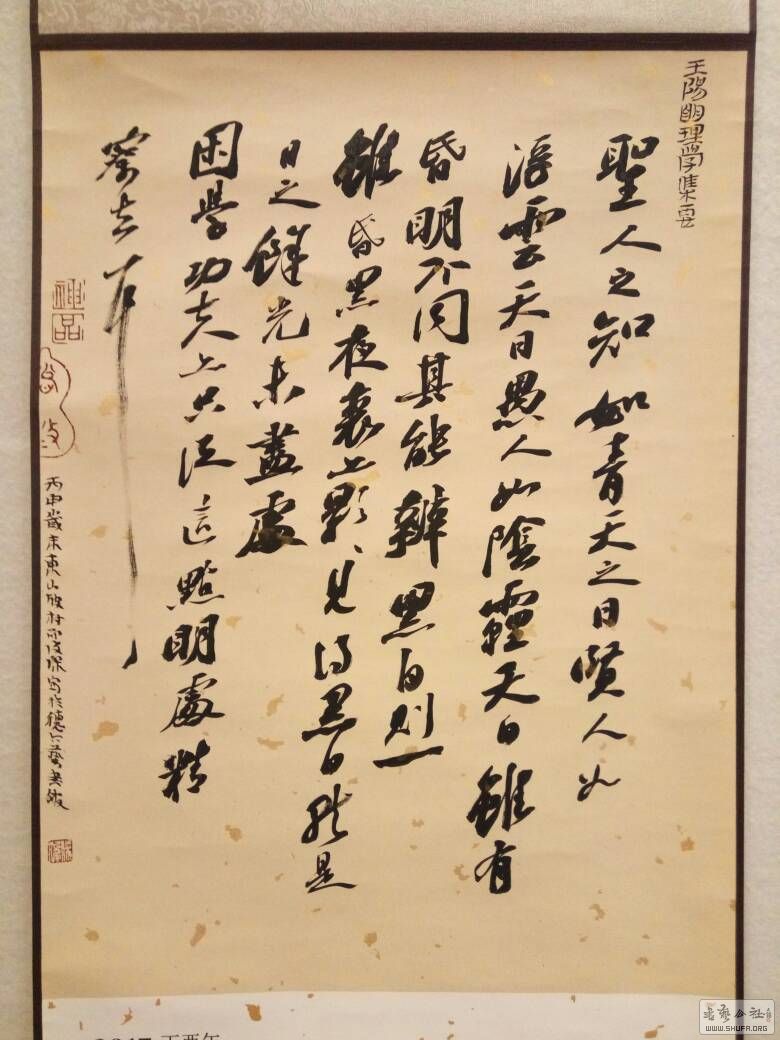 王陽明理學集要
聖人之知如青天之日賢人如
浮雲天日愚人如陰霾天日雖有
昏明不同其能辨黑白則一
雖昏黑夜裏亦影、見得黑白就是
日之餘光未盡處
困學功夫亦只從這點明處精
察去耳
神品
丙申歲末東山
2017 丁酉年
書藝公社
WWW.SHUFA.ORG